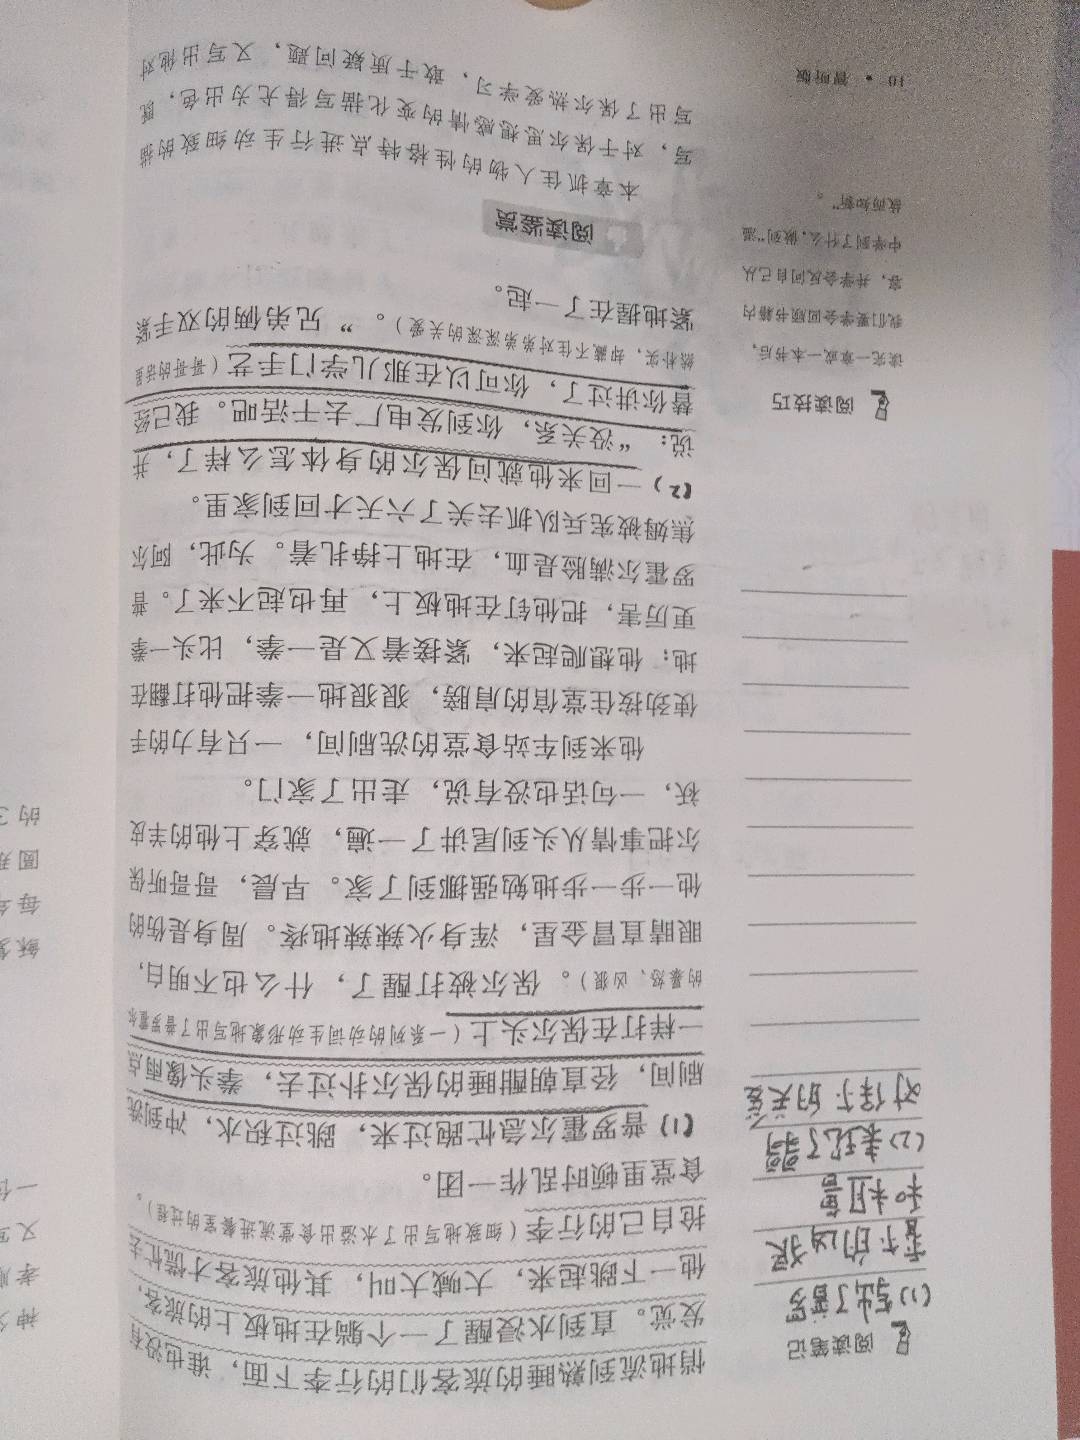 悄地流到熟睡的旅客们的行李下面，谁也没有
发觉。直到水浸醒了一个躺在地板上的旅客，
他一下跳起来，大喊大叫，其他旅客才慌忙去
抢自己的行李（细致地写出了水溢出食堂流进餐室的过程）。
食堂里顿时乱作一团。
(1) 普罗霍尔急忙跑过来，跳过积水，冲到洗
刷间，径直朝酣睡的保尔扑过去，拳头像雨点
一样打在保尔头上（一系列的动词生动形象地写出了普罗霍尔
的暴怒、凶狠）。保尔被打醒了，什么也不明白，
眼睛直冒金星，浑身火辣辣地疼。周身是伤的
他一步一步地勉强挪到了家。早晨，哥哥听保
尔把事情从头到尾讲了一遍，就穿上他的羊皮
袄，一句话也没有说，走出了家门。
他来到车站食堂的洗刷间，一只有力的手
使劲按住堂倌的肩膀，狠狠地一拳把他打翻在
地；他想爬起来，紧接着又是一拳，比头一拳
更厉害，把他钉在地板上，再也起不来了。普
罗霍尔满脸是血，在地上挣扎着。为此，阿尔
焦姆被宪兵队抓去关了六天才回到家里。
(2) 一回来他就问保尔的身体怎么样了，并
说：“没关系，你到发电厂去干活吧。我已经
替你讲过了，你可以在那儿学门手艺（哥哥的话虽
然朴实，却藏不住对弟弟深深的关爱）。”兄弟俩的双手紧
紧地握在了一起。
阅读鉴赏
本章抓住人物的性格特点进行生动细致的描
写，对于保尔思想感情的变化描写得尤为出色，既
写出了保尔热爱学习，敢于质疑问题，又写出他对
阅读笔记
(1) 写出了普罗
霍尔的凶狠
和粗鲁
(2) 表现了哥哥
对保尔的关爱
阅读技巧
读完一章或一本书后，
我们要学会回顾书籍内
容，并学会反问自己从
中学到了什么，做到“温
故而知新”。
10 • 智听版
的
圆
每
稣
一
又
孝
神